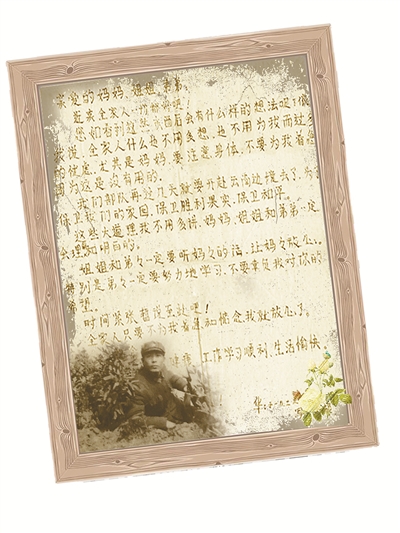 亲爱的妈妈、姐姐、弟弟:
近来全家人
您们看到这些东西后会有什么样的想法呢?
我说,全家人什么也不用去想,也不用为我而过多
的忧虑,尤其是妈妈,要注意身体,不要为我着急
因为这是没有用的。
我们部队再过几天就要
保卫我们的家园,保卫胜利果实,保卫和平。
这些大道理我不用多讲,妈妈、姐姐和弟弟一定
会理和明白的。
姐姐和弟弟一定要听妈妈的话,让妈妈放心。
特别是弟弟一定要努力地学习,不要辜负我对你的
希望。
时间紧张我就说至这里!
全家人只要不为我着急加挂念我就放心了。
工作学习顺利、生活愉快